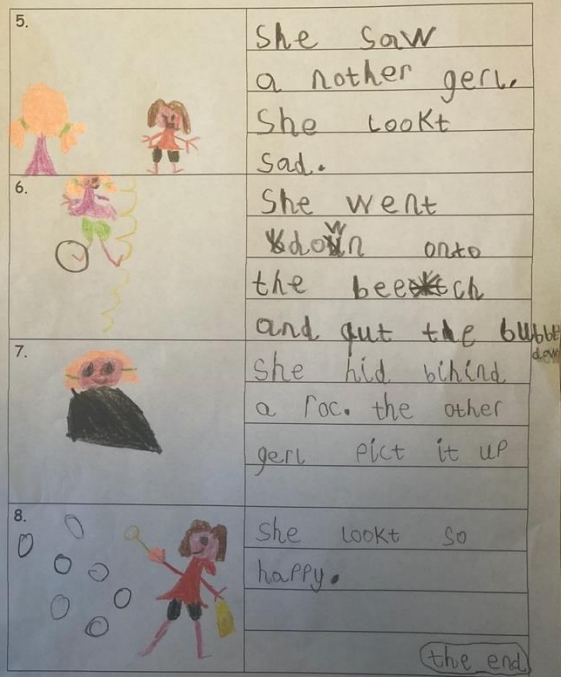 5.
She saw
a nother gerl.
She lookt
sad.
6.
She went
down onto
the beetch
and put the bubble
down
7.
She hid bihind
a roc. the other
gerl pict it up
8.
She lookt so
happy.
the end